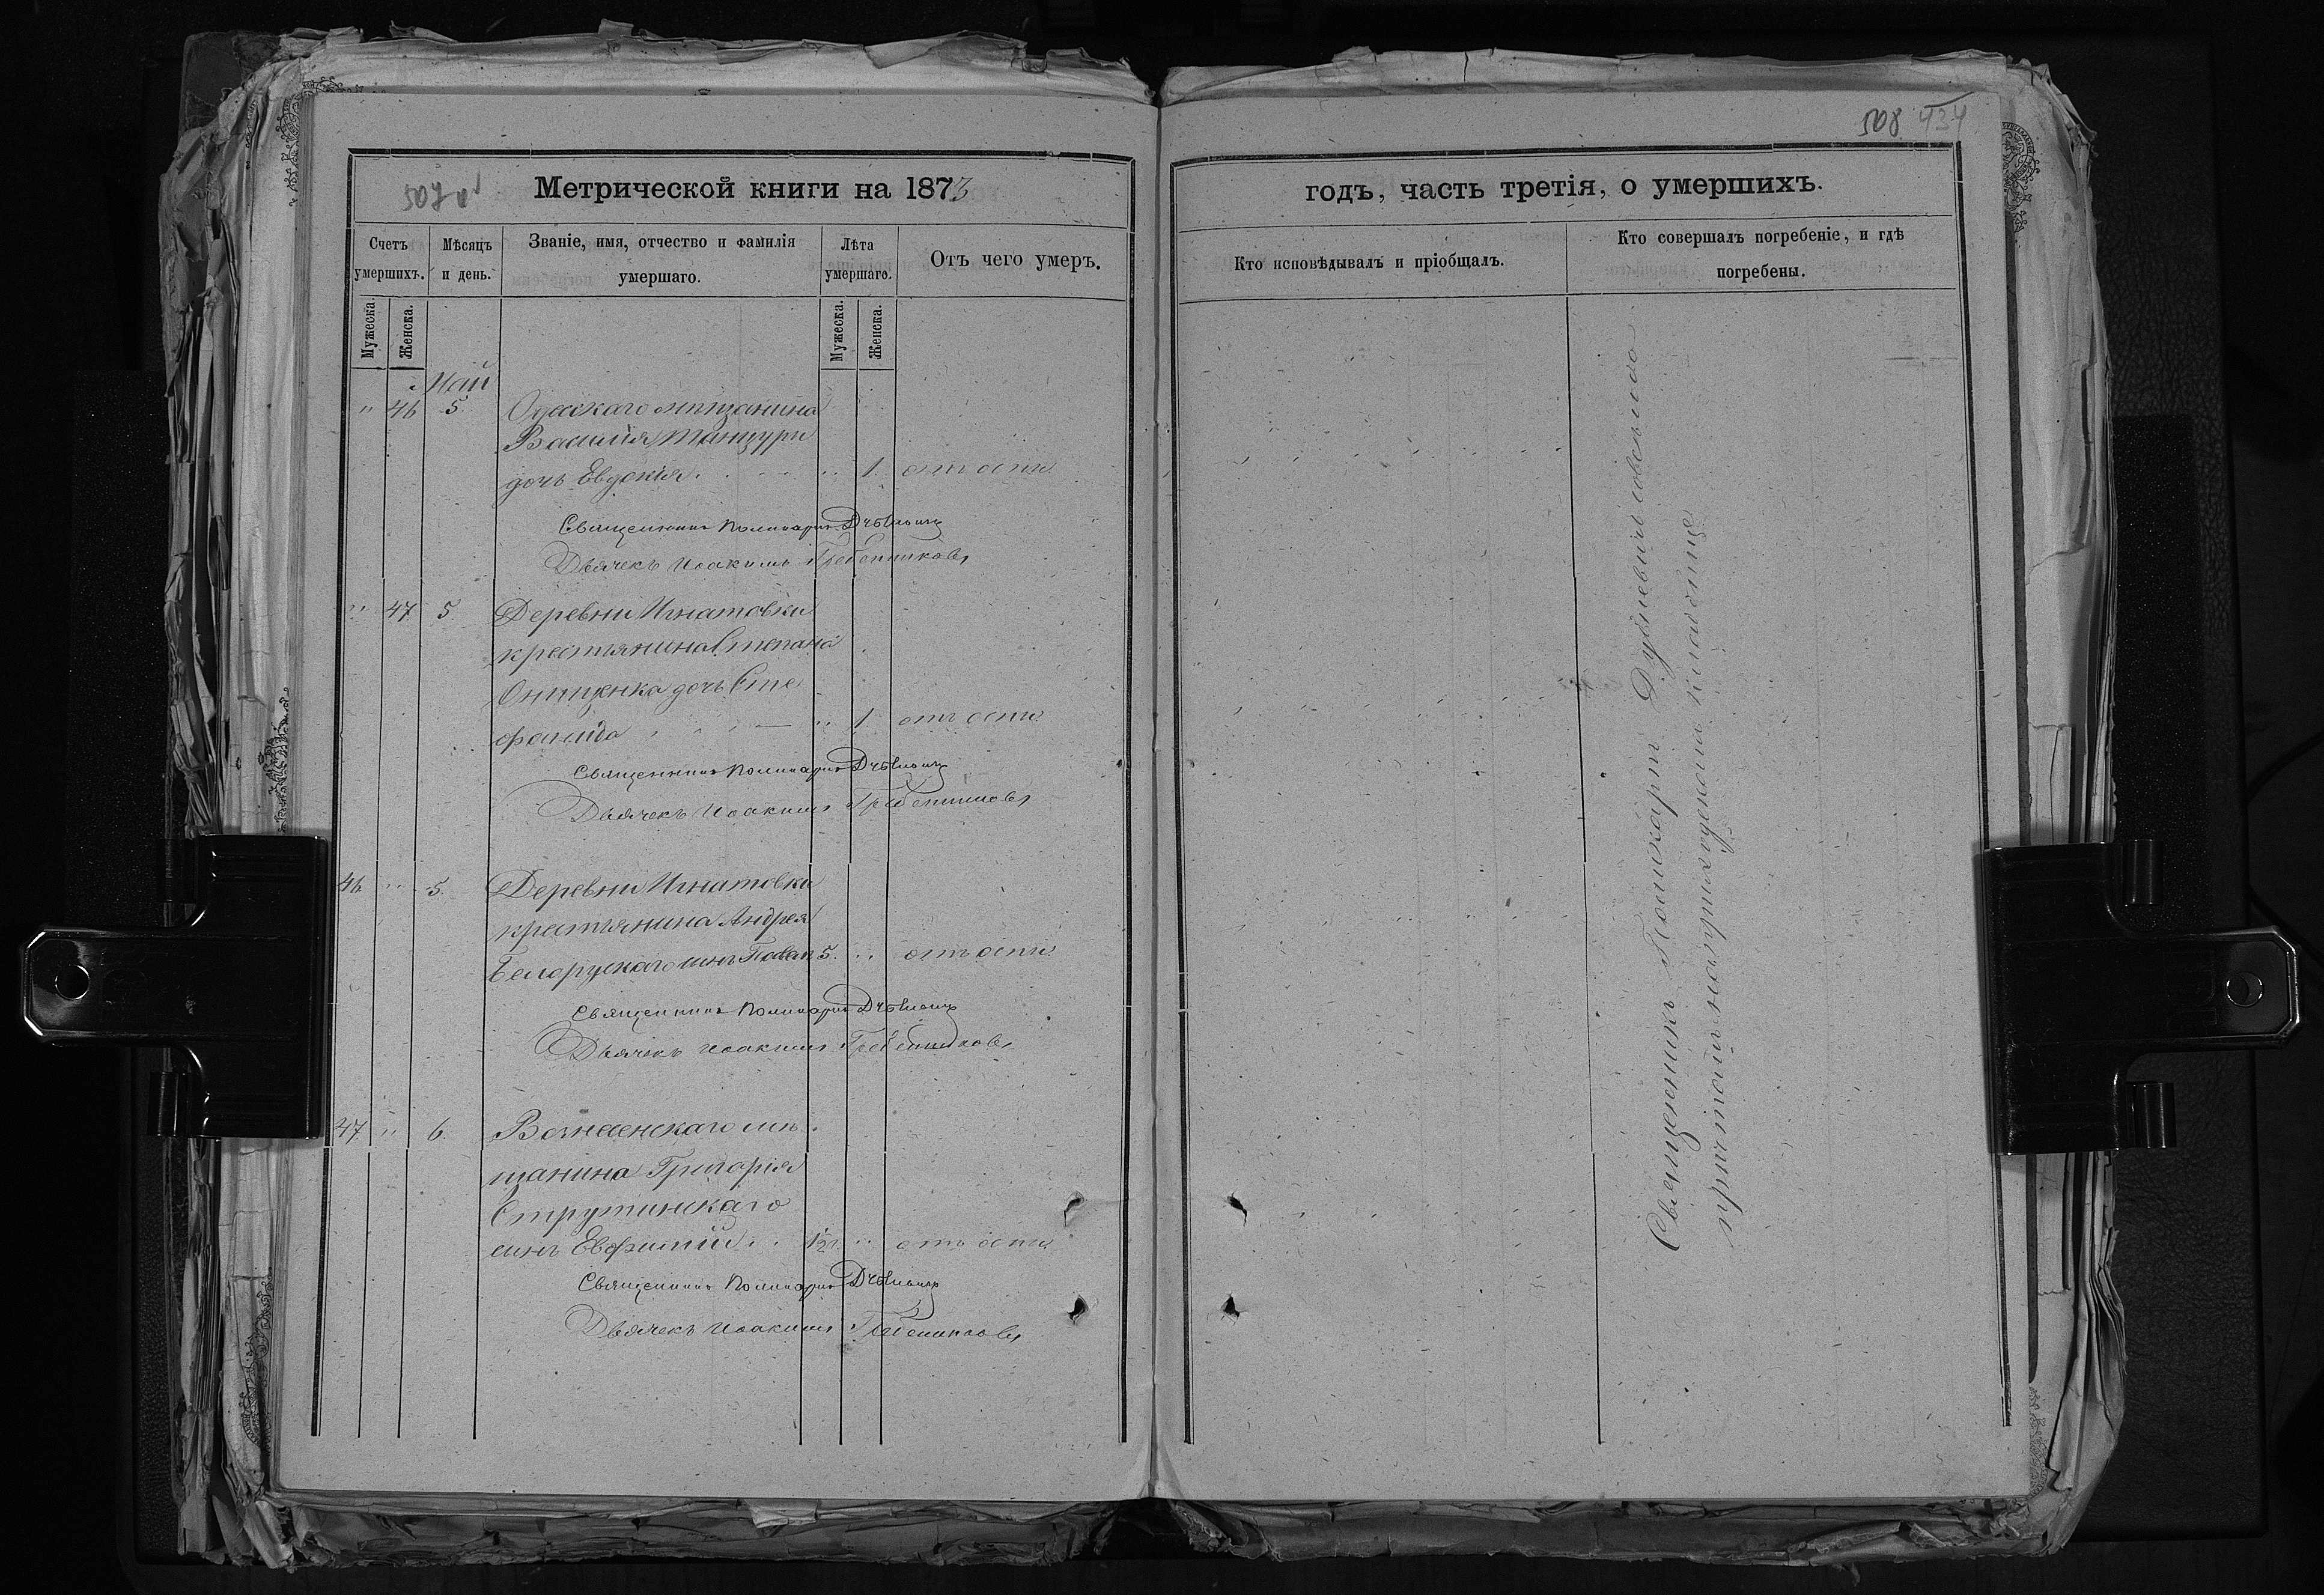 508 434
507 об
Метрической книги на 1873
годъ, часть третія, о умершихъ.
Счетъ умершихъ.
Мѣсяцъ и день.
Званіе, имя, отчество и фамилія умершаго.
Лѣта умершаго.
Отъ чего умеръ.
Кто исповѣдывалъ и пріобщалъ.
Кто совершалъ погребеніе, и гдѣ погребены.
Мужеска.
Женска.
Мужеска.
Женска.
Май
" 46 5
Одесскаго мѣщанина
Василія Танцури
дочь Евдокія " 1 отъ оспи
Священникъ Поликарпъ
Дьячекъ Иоакимъ Гребенниковъ
" 47 5 Деревни Игнатовки
крестьянина Степана
Онищенка дочь Сте
фанида " 1 отъ оспи
Священникъ Поликарпъ
Дьячекъ Иоакимъ Гребенниковъ
46 " 5 Деревни Игнатовки
крестьянина Андрея
Белорускаго синъ 5 " отъ оспи
Священникъ Поликарпъ
Дьячекъ Иоакимъ Гребенниковъ
47 " 6 Вознесенскаго мѣ
щанина Григорія
Струтинскаго
синъ Евфимій 1/2 г. " отъ оспи
Священникъ Поликарпъ
Дьячекъ Иоакимъ Гребенниковъ
Священникъ Поликарпъ
на приходскомъ кладбищѣ